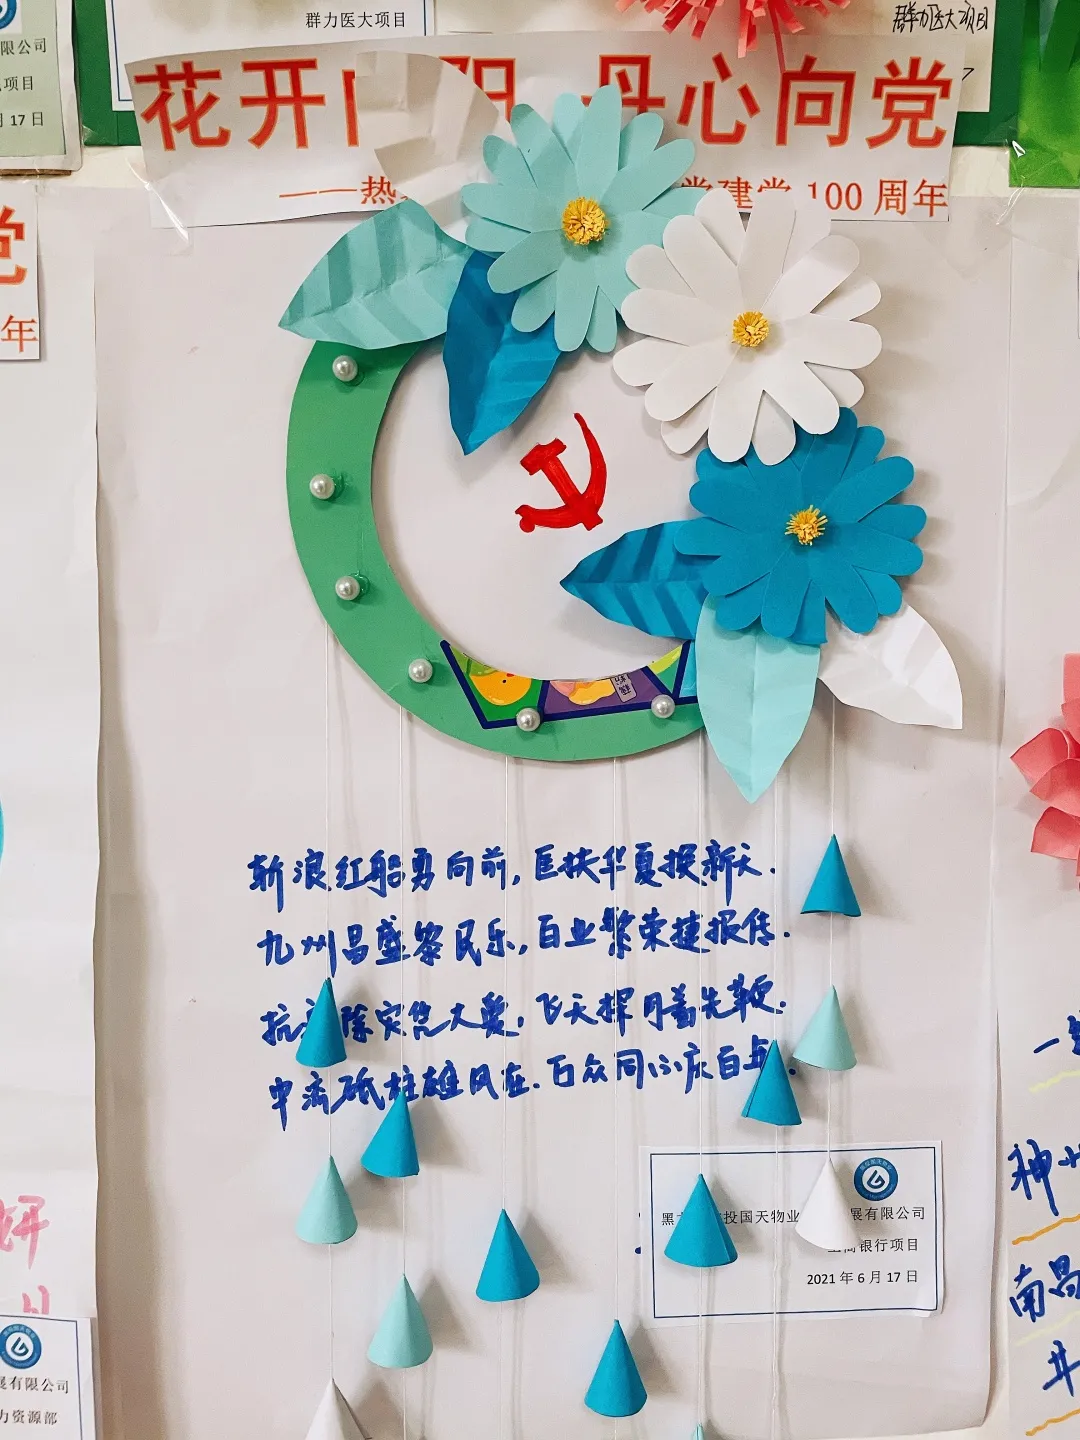 群力医大项目
群力医大项目
限公司
项目
月17日
花开 阳 丹心向党
——热 党建党 100 周年
党
年
斩浪红船勇向前,匡扶华夏换新天.
九州昌盛黎民乐,百业繁荣捷报传.
抗 除灾凭大爱,飞天探月着先鞭.
中流砥柱雄风在.百众同心庆百 .
黑 投国天物业 展有限公司
银行项目
2021 年 6 月 17 日
展有限公司
力资源部
神州
南昌
井